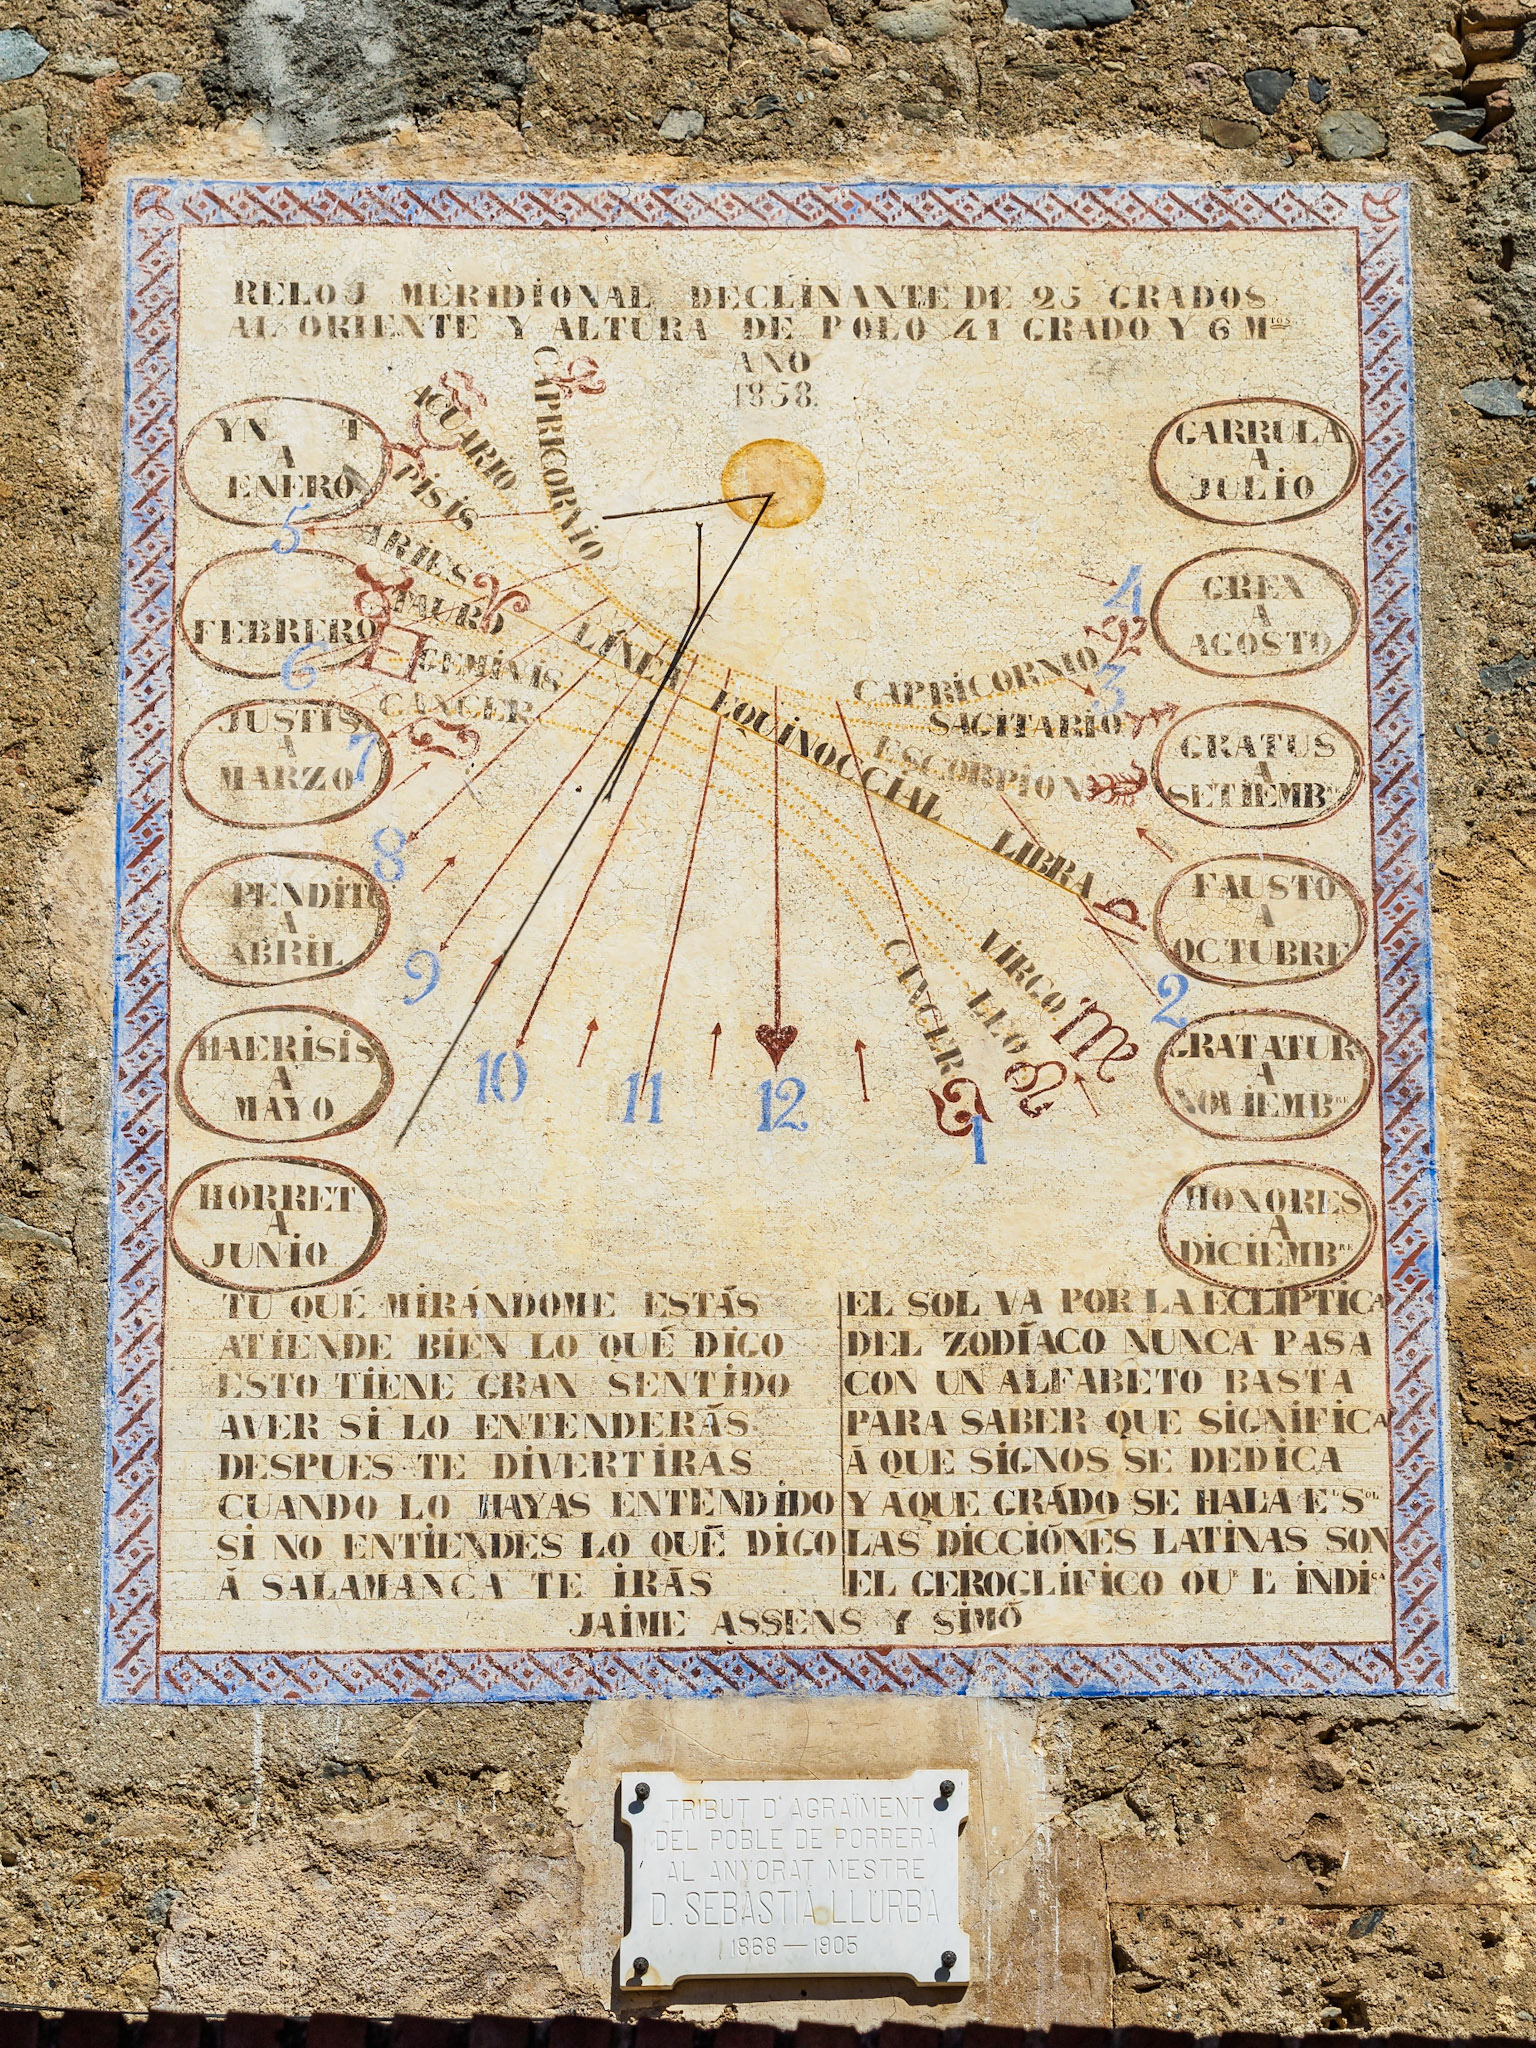 RELOJ MERIDIONAL DECLINANTE DE 25 GRADOS
AL ORIENTE Y ALTURA DE POLO 41 GRADO Y 6 Mᵗᵒˢ
ANO
1858.
YN T
A
ENERO
FEBRERO
JUSTIS
A
MARZO
PENDITU
A
ABRIL
HAERISIS
A
MAYO
HORRET
A
JUNIO
ACUARIO
CAPRICORNIO
PISIS
ARIES
TAURO
GEMINIS
CANCER
LÍNEA EQUINOCCIAL LIBRA
CAPRICORNIO
SAGITARIO
ESCORPION
VIRGO
LEO
CANCER
5
6
7
8
9
10
11
12
1
2
3
4
GARRULA
A
JULIO
GREX
A
AGOSTO
GRATUS
A
SETIEMBᴿᴱ
FAUSTO
A
OCTUBRE
GRATATUR
A
NOVIEMBᴿᴱ
HONORES
A
DICIEMBᴿᴱ
TU QUÉ MIRÁNDOME ESTÁS
ATIENDE BIEN LO QUÉ DIGO
ESTO TIENE GRAN SENTIDO
AVER SI LO ENTENDERÁS
DESPUES TE DIVERTIRAS
CUANDO LO HAYAS ENTENDIDO
SI NO ENTIENDES LO QUÉ DIGO
Á SALAMANCA TE IRÁS
EL SOL VA POR LA ECLÍPTICA
DEL ZODÍACO NUNCA PASA
CON UN ALFABETO BASTA
PARA SABER QUE SIGNIFICA
Á QUE SIGNOS SE DEDICA
Y AQUE GRÁDO SE HALA Eᴸ Sᴼᴸ
LAS DICCIÓNES LATINAS SON
EL GEROGLIFICO QUᴱ Lᴼ INDIᶜᴬ
JAIME ASSENS Y SIMÓ
TRIBUT D'AGRAÏMENT
DEL POBLE DE PORRERA
AL ANYORAT MESTRE
D. SEBASTIÀ LLURBA
1868 — 1905